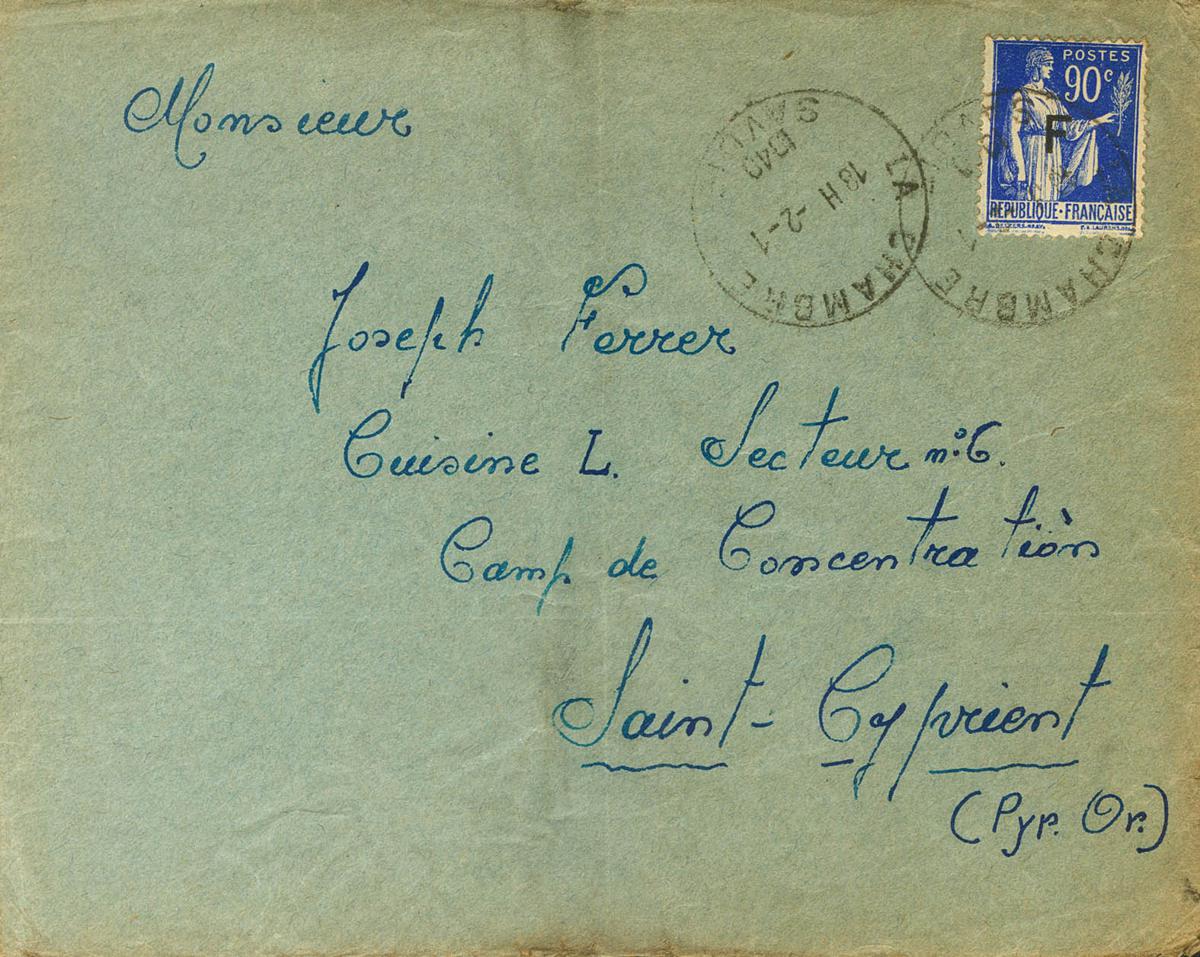 Monsieur
Joseph Ferrer
Cuisine L. Secteur nº 6.
Camp de Concentratiòn
Saint-Cyprient
(Pyr. Or.)
POSTES
90c
F
REPUBLIQUE·FRANÇAISE
LA CHAMBRE
18 H -2-1
1940
SAVOIE
CHAMBRE